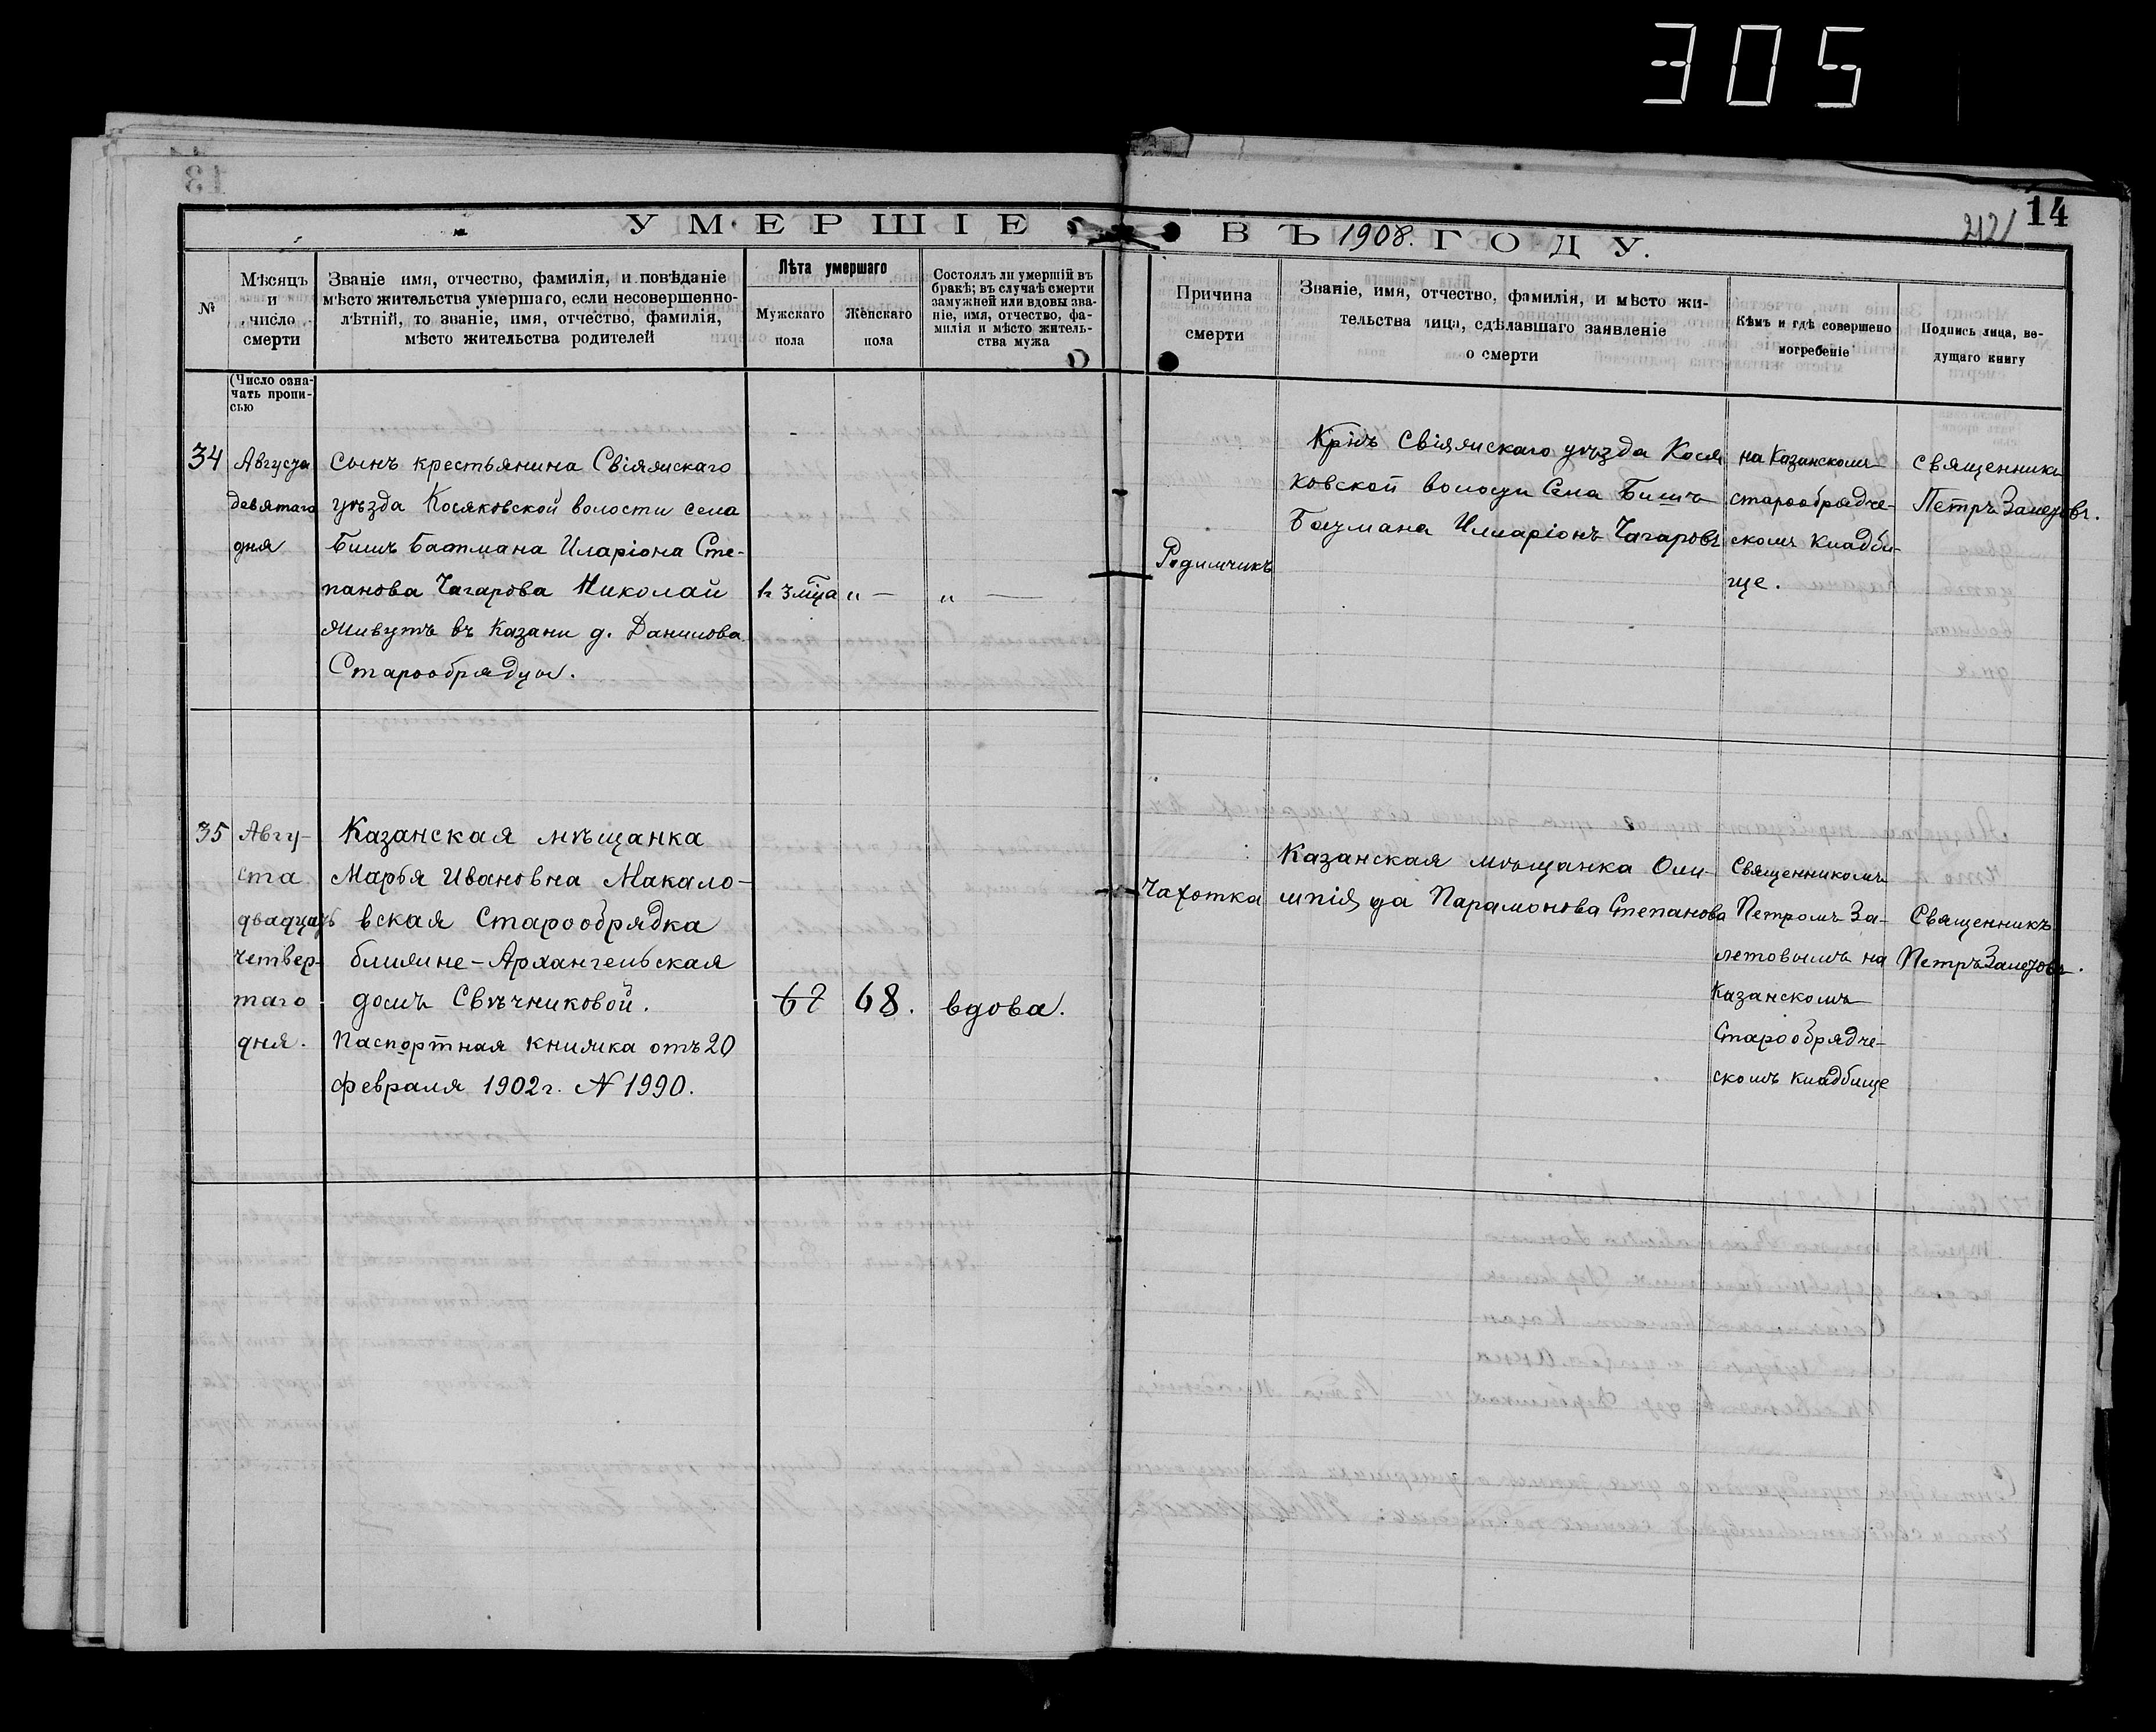 305
14
212
УМЕРШІЕ ВЪ 1908. ГОДУ.
№
Мѣсяцъ
и
число
смерти
Званіе имя, отчество, фамилія, и повѣданіе
мѣсто жительства умершаго, если несовершенно-
лѣтній, то званіе, имя, отчество, фамилія,
мѣсто жительства родителей
Лѣта умершаго
Мужскаго
пола
Женскаго
пола
Состоялъ ли умершій въ
бракѣ; въ случаѣ смерти
замужней или вдовы зва-
ніе, имя, отчество, фа-
милія и мѣсто житель-
ства мужа
Причина
смерти
Званіе, имя, отчество, фамилія, и мѣсто жи-
тельства лица, сдѣлавшаго заявленіе
о смерти
Кѣмъ и гдѣ совершено
погребеніе
Подпись лица, ве-
дущаго книгу
(Число озна-
чать пропи-
сью
34
Августа
девятаго
дня
сынъ крестьянина Свіяжскаго
уѣзда Косяковской волости села
Бишъ Батмана Иларіона Сте-
панова Чагарова Николай
живутъ въ Казани д. Данилова
Старообрядцы.
1г 3 мца
„ —
„ —
Родимчикъ
Крнъ Свіяжскаго уѣзда Кося
ковской волости Села Бишъ
Батмана Иларіонъ Чагаровъ
на Казанскомъ
старообрядче-
скомъ кладби-
ще.
священникъ
Петръ Залетовъ.
35
Авгу-
ста
двадцать
четвер-
таго
дня.
Казанская мѣщанка
Марья Ивановна Макало-
вская Старообрядка
ближне-Архангельская
домъ Свѣчниковой.
Паспортная книжка отъ 20
февраля 1902 г. № 1990.
67
68.
вдова.
Чахотка
Казанская мѣщанка Оли-
мпіяда Парамонова Степанова
Священникомъ
Петромъ За-
летовымъ на
Казанскомъ
Старообрядче-
скомъ кладбище
Священникъ
Петръ Залетовъ.